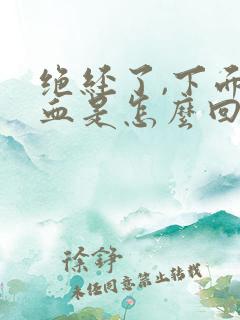 绝经了,下面
血是怎麼回
徐铮
未经同意禁止转载